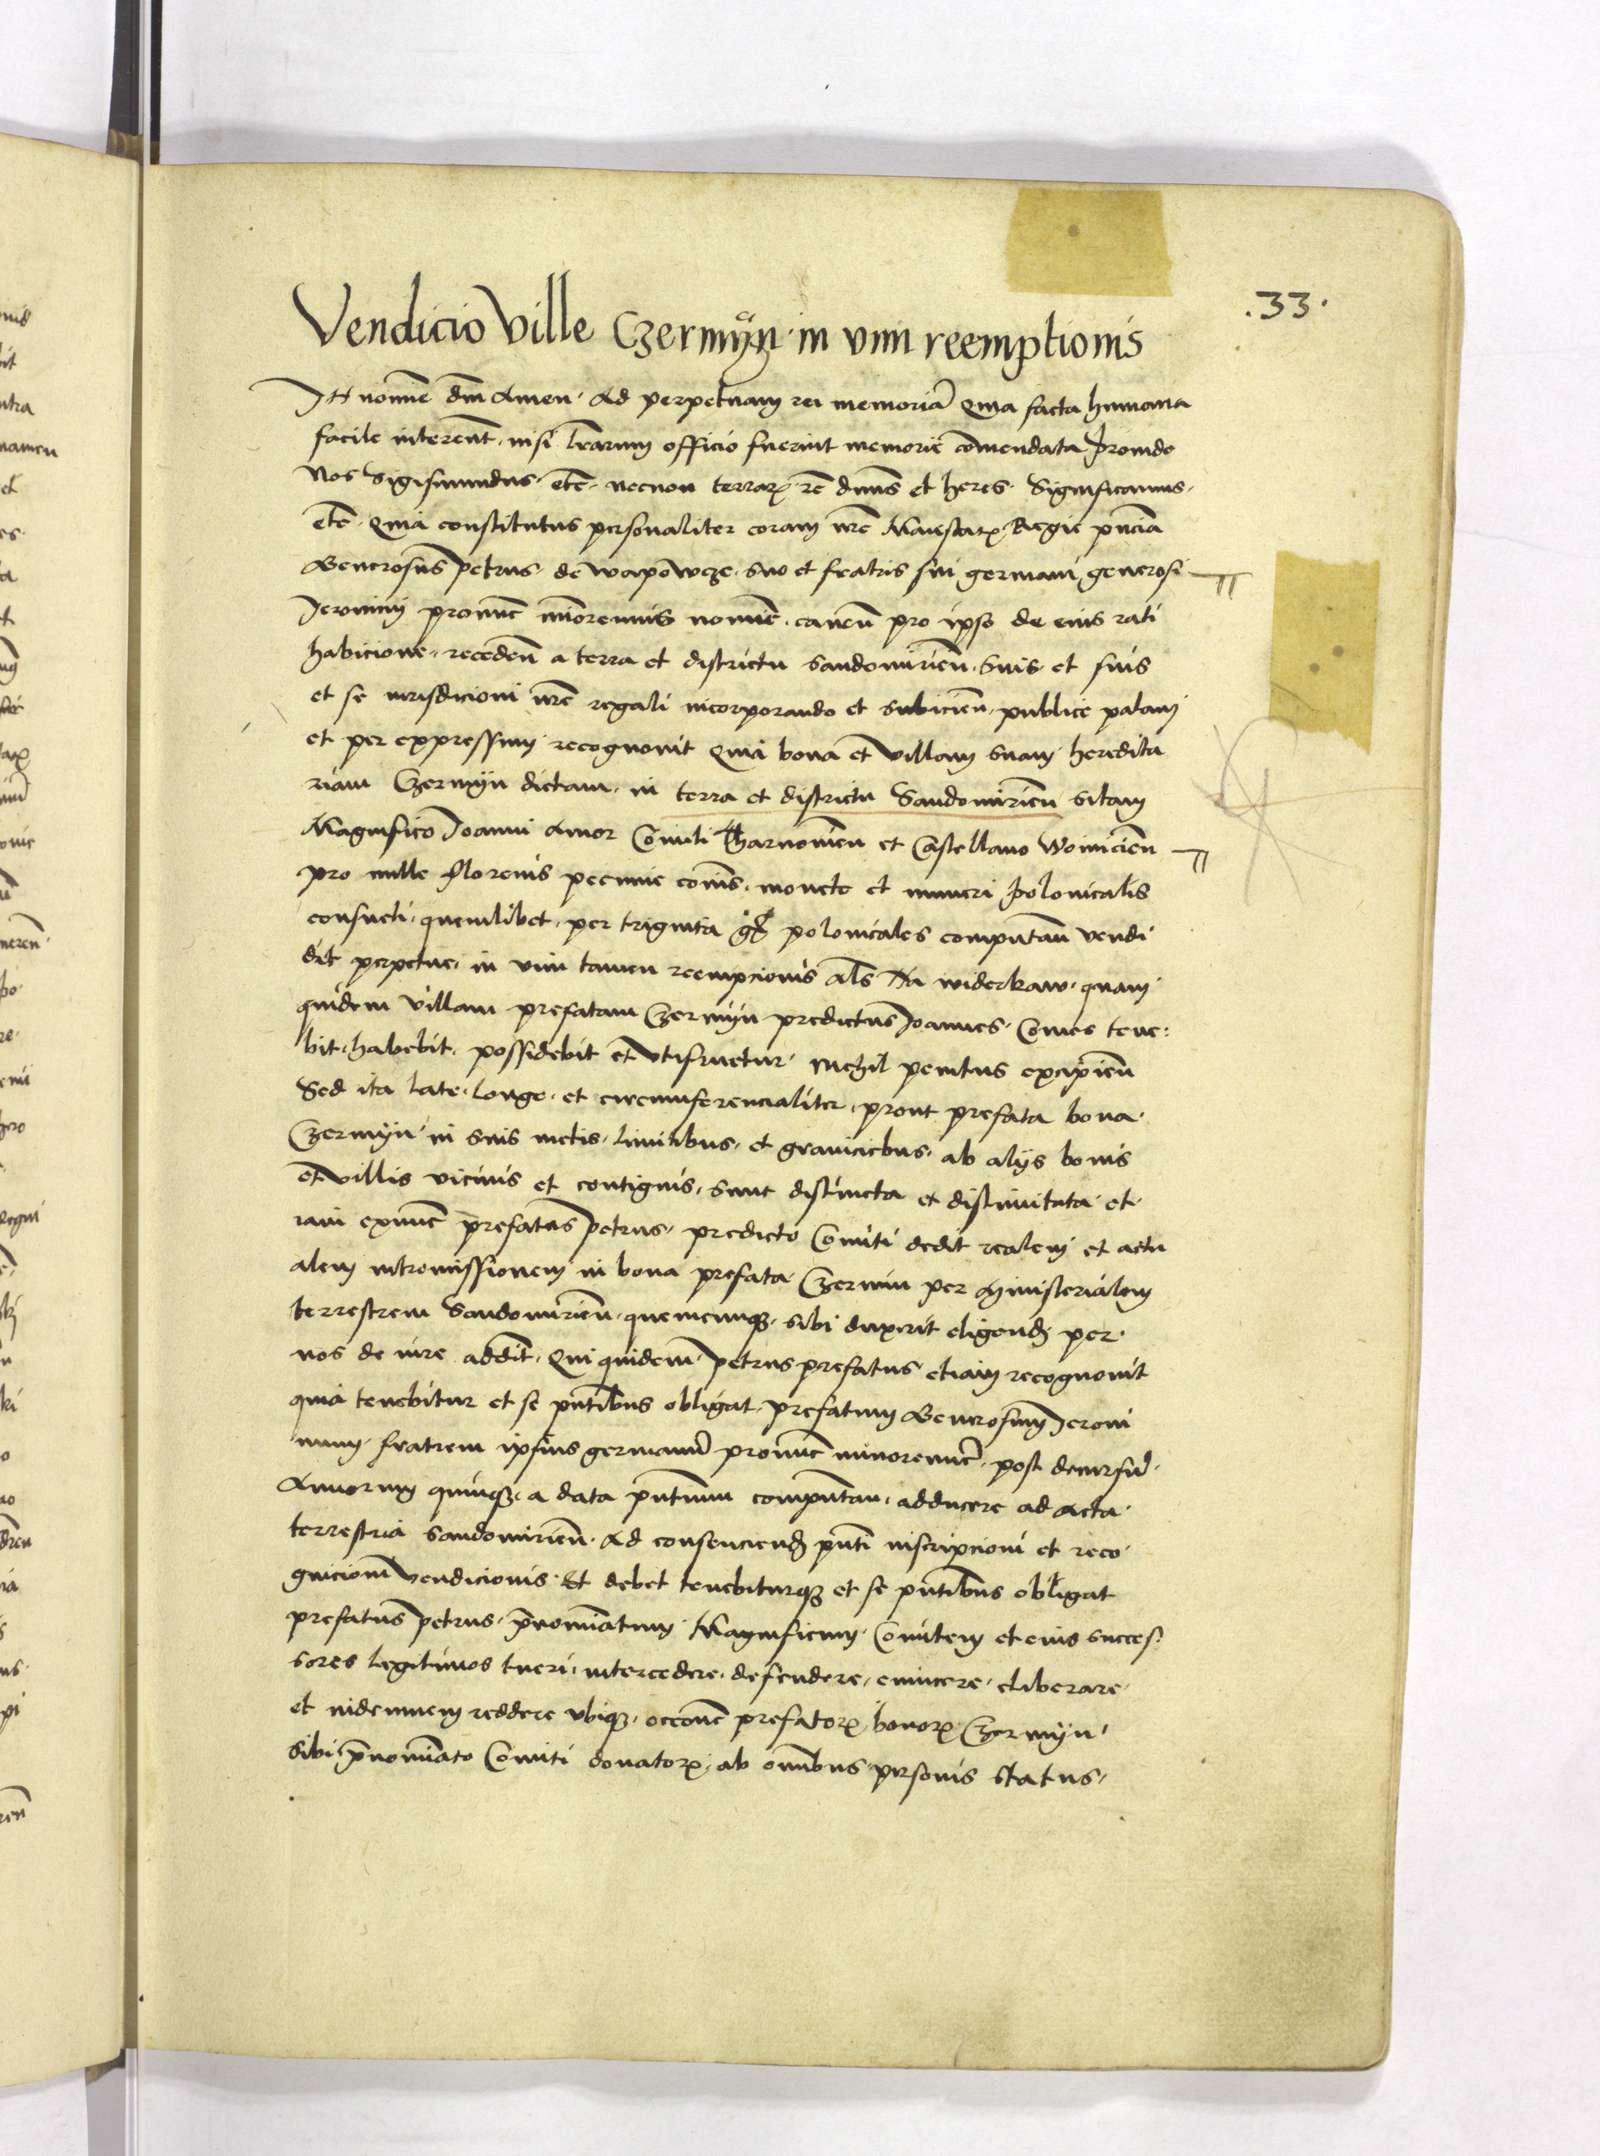 .33.
Vendicio Ville Czermÿn in vim reemptionis
IN nomīe dm̄ Amen. Ad perpetuam rei memoriā Quia facta humana
facile intereūt, nisi l̄rarum officio fuerint memorie cōmendata Proinde
Nos Sigismundus. etc̄. necnon terrarꝝ. rc̄ dn̄us et heres. Significamus.
etc̄. Quia constitutus personaliter coram nr̄e Maiestatꝭ. Regie pn̄cia
Generosus Petrus. de Wapowcze. suo et fratris sui germani generosi
Jeronimi pronūc mīorennis nomīe. caueñ pro ipso de eius rati
habicione. recedeñ a terra et districtu Sandomirieñ. suis et suis
et se iurisdicioni nr̄e regali incorporando et subicieñ. publice palam
et per expressum recognouit Quia bona et Villam suam heredita
riam Czermyn dictam. in terra et districtu Sandomirieñ sitam
Magnifico Joanni Amor Comiti Tharnowieñ et Castellano Woiniciēn
pro mille florenis pecunie cōis. monete et numeri polonicalis
consueti. quemlibet. per triginta gꝝ polonicales computañ vendi
dit perpetue. in vim tamen reempcionis al̄s Na widerkaw. quam
quidem Villam prefatam Czermyn predictus Joannes. Comes tene:
bit. habebit. possidebit et Vtifruetur. Nichil penitus excipieñ
Sed ita late. longe. et circumferencialiter. prout prefata bona.
Czermyn in suis metis. limitibus. et graniciebus. ab alijs bonis
et Villis vicinis et contiguis. sunt distincta et dislimitata. et.
iam exnūc prefatus Petrus. predicto Comiti dedit realem et actu
alem intromissionem in bona prefata Czermin per Ministerialem
terrestrem Sandomirieñ. quemcunqꝫ. sibi duxerit eligendꝫ per.
nos de iure addit. Qui quidem Petrus prefatus etiam recognouit
quia tenebitur et se pn̄tibus obligat. prefatum Generosum Jeroni
mum. fratrem ipsius germanū pronūc minorennē. post decursū.
Annorum quinqꝫ. a data pn̄tium computañ. adducere ad Acta.
terrestria Sandomirieñ. Ad consenciendꝫ pn̄ti inscripcioni et reco
gnicioni Vendicionis. Et debet tenebiturqꝫ et se pn̄tibus obligat
prefatus Petrus. p̄nomīatum Magnificum. Comitem et eius succes:
sores legitimos tueri. intercedere. defendere. euincere. eliberare.
et indemnem reddere vbiqꝫ. occōne prefatorꝝ. bonorꝝ Czermyn.
Sibi. p̄nomīato Comiti donatorꝝ. ab omībus personis status.